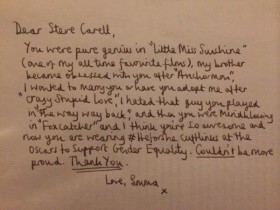 Dear Steve Carell,
You were pure genius in "Little Miss Sunshine"
(one of my all time favorite films), my brother
became obsessed with you after "Anchorman",
I wanted to marry you or have you adopt me after
"Crazy Stupid Love", I hated that guy you played
in "The way way back", and then you were Mindblowing
in "Foxcatcher" and I think you're so awesome and
now you are wearing #HeforShe cufflinks at the
Oscars to support Gender Equality. Couldn't be more
proud. Thank you.
Love, Emma
x